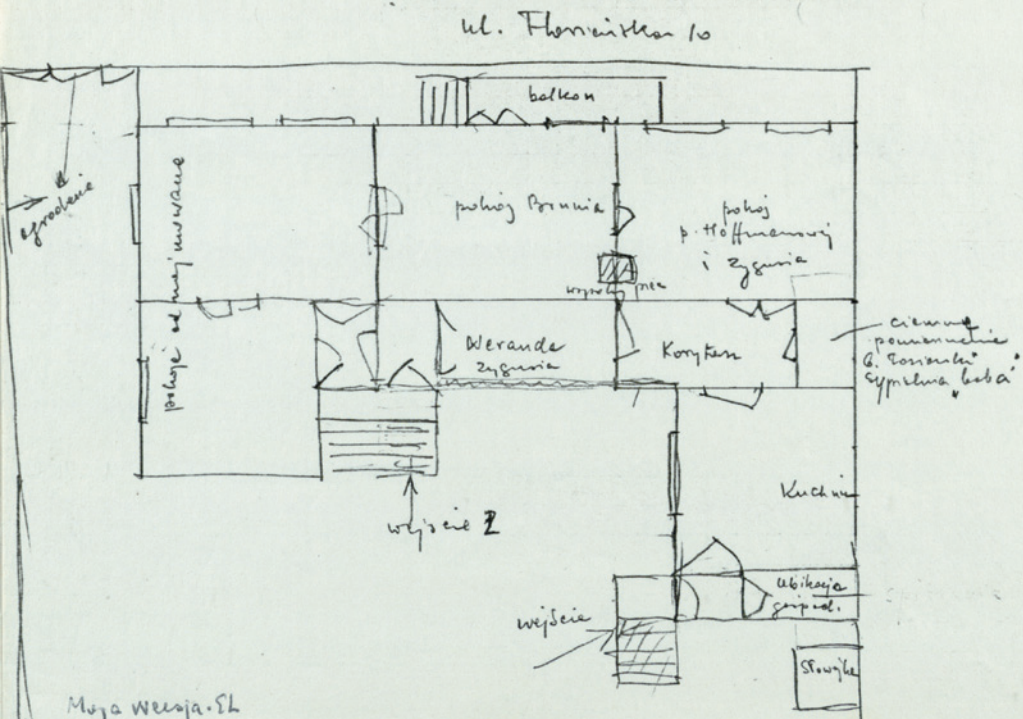 ul. Floriańska 10
balkon
ogrodzenie
pokoje odnajmowane
pokój Brunia
pokój
p. Hoffmanowej
i Zygusia
wysoki piec
Weranda
Zygusia
Korytarz
ciemne
pomieszczenie
sypialnia "babci"
Kuchnia
wejście 2
wejście
ubikacja
gospod.
Sławojka
Moja wersja. EL